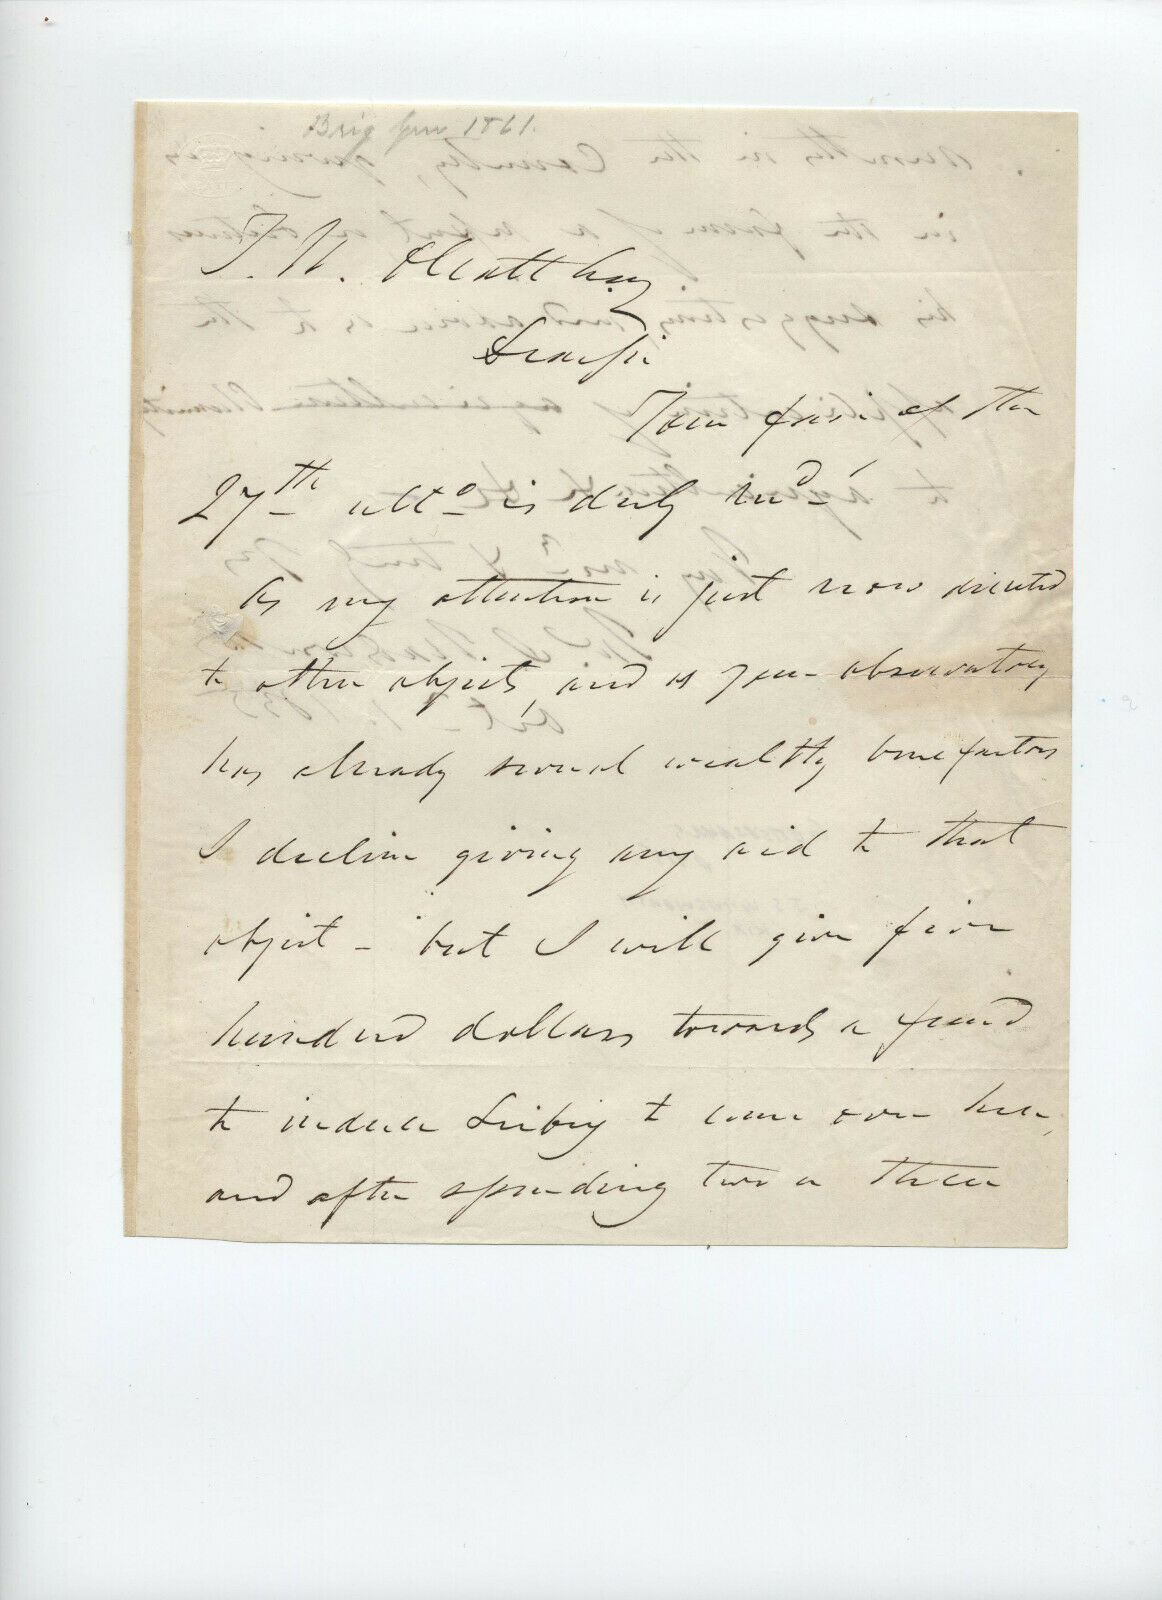 Brig Gen 1861.
T. W. Olcott Esq
Dear Sir
Your favor of the
27th ulto is duly recd
As my attention is just now directed
to other objects, and as your observatory
has already several wealthy benefactors
I decline giving any aid to that
object - but I will give five
hundred dollars towards a fund
to induce Liebig to come over here,
and after spending two or three